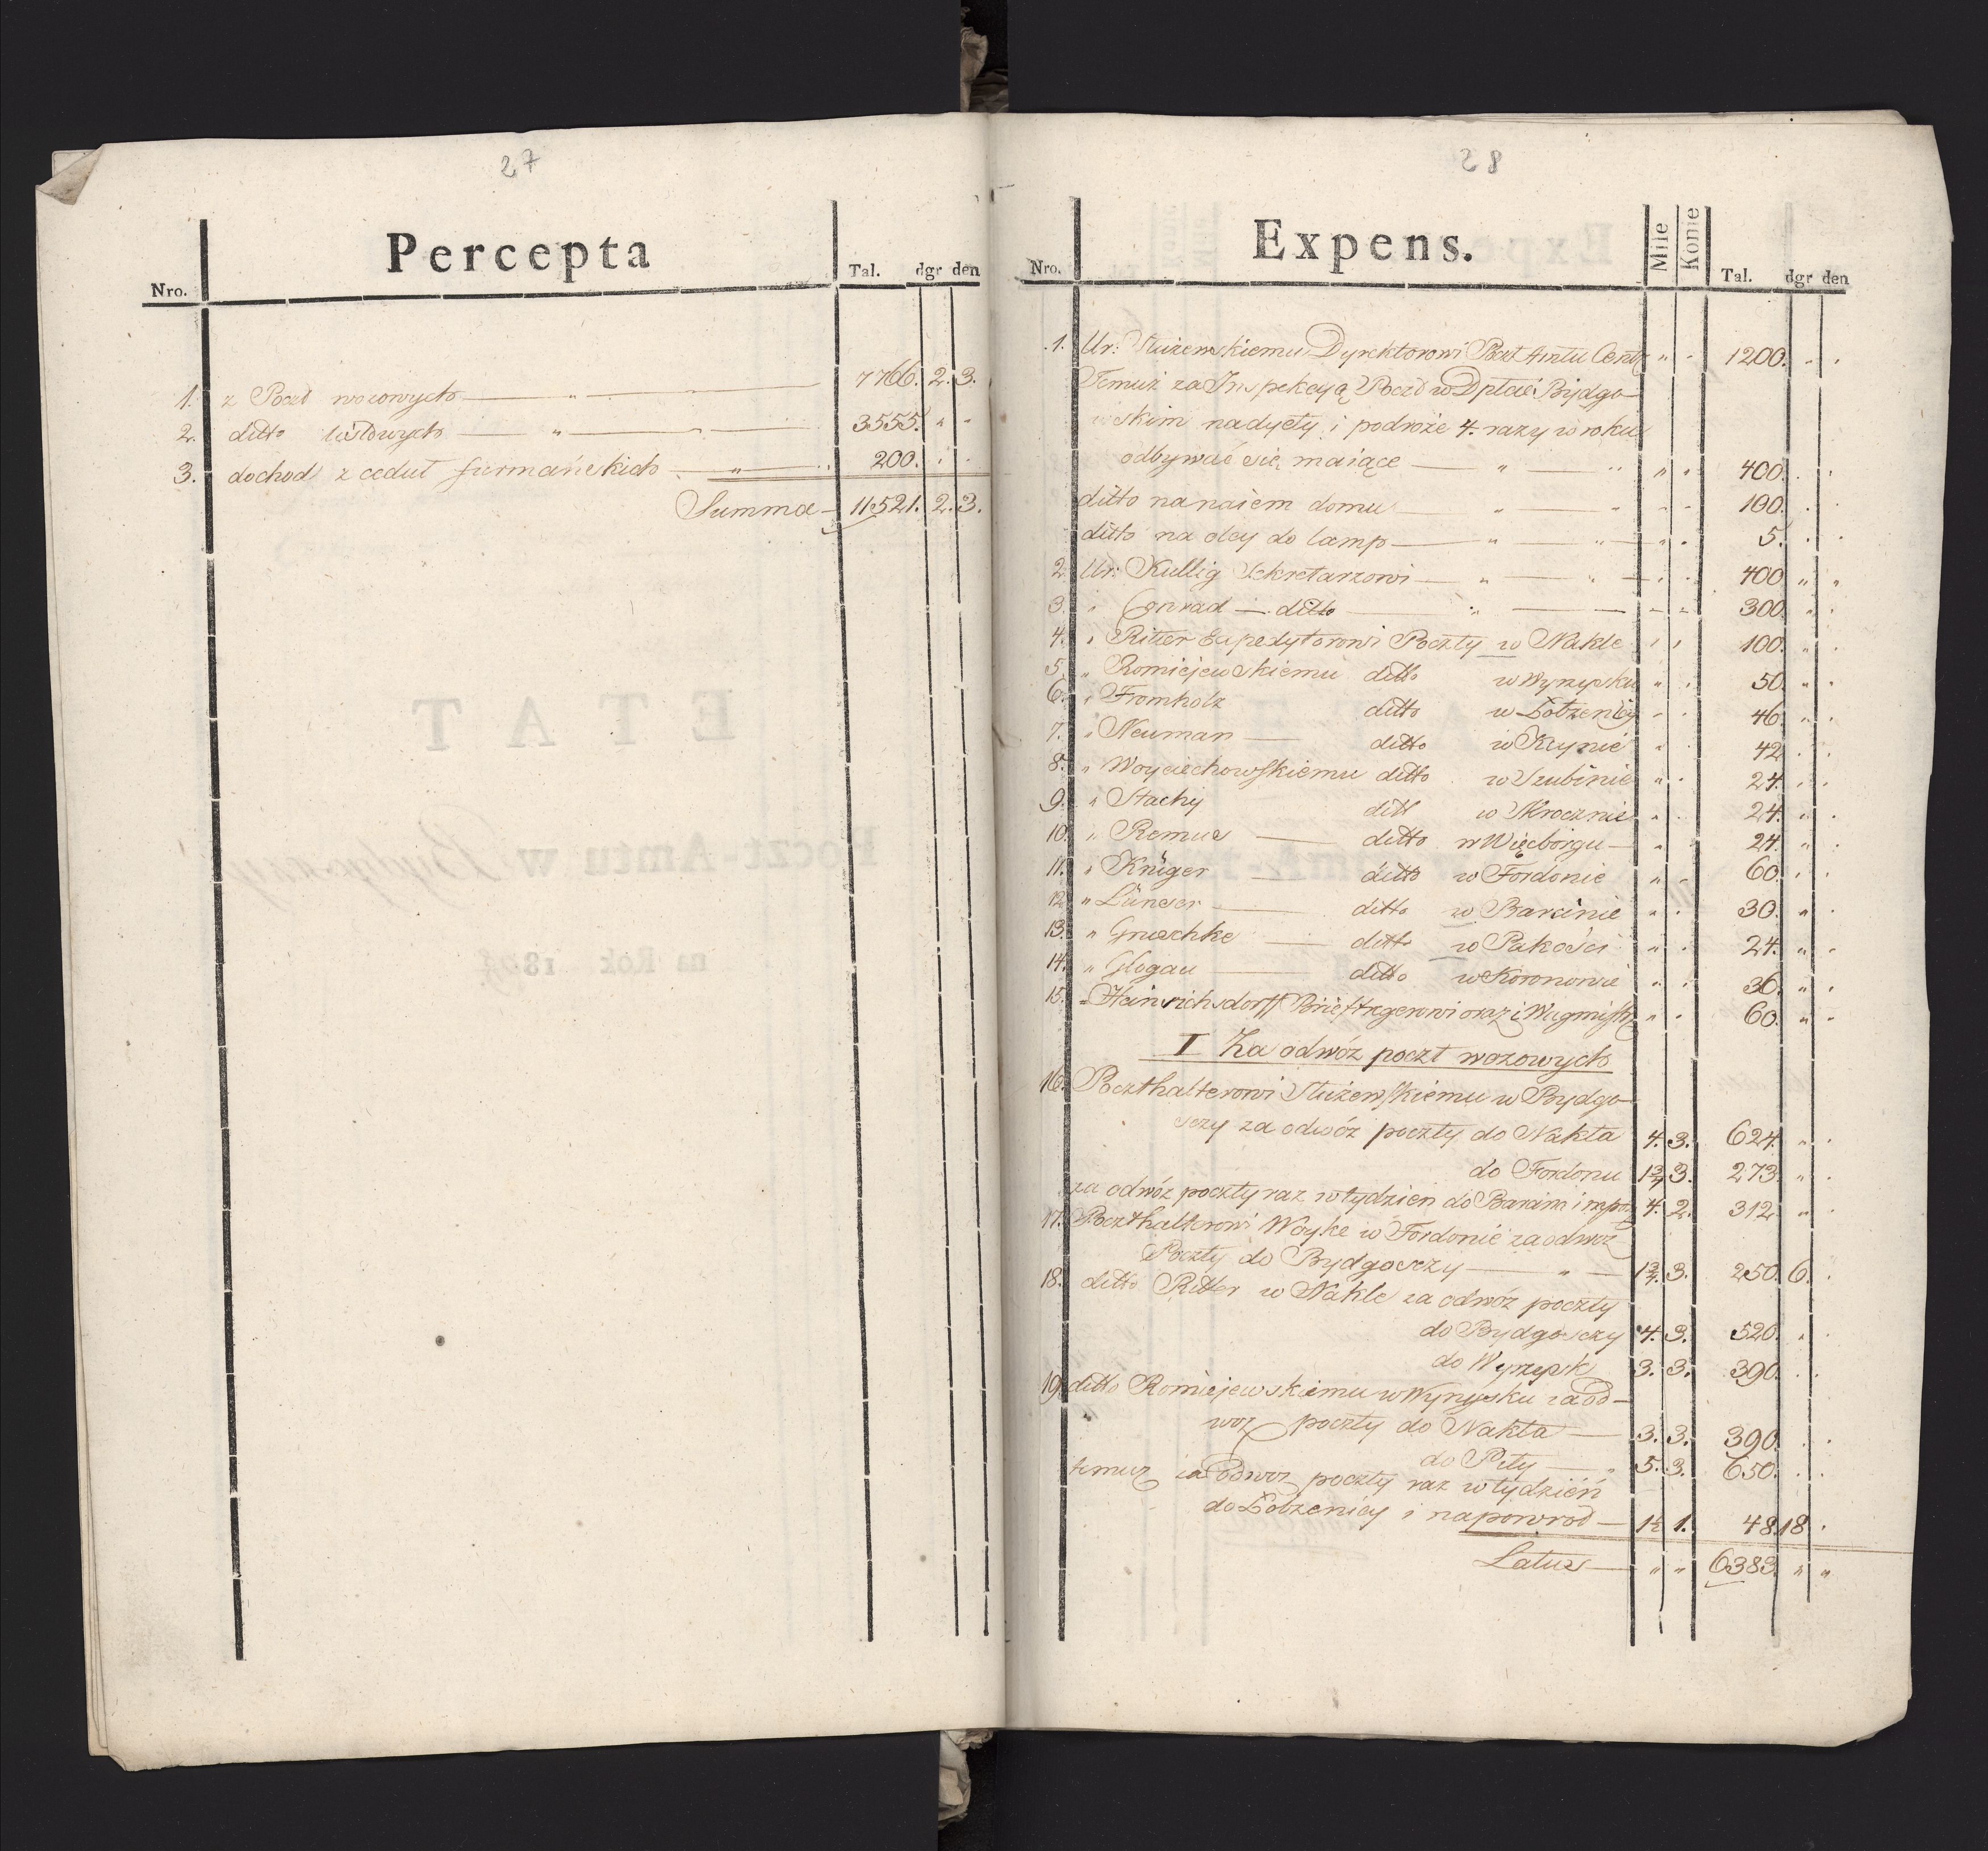 27
Percepta
Nro. Tal. dgr den
1. z Poczt wozowych — " — 7766. 2. 3.
2. ditto listowych — " — 3555. " "
3. dochod z ceduł furmańskich — " — 200. . .
Summa — 11521. 2. 3.
28
Expens.
Nro. Mile Konie Tal. dgr den
1. Ur: Służewskiemu Dyrektorowi Poczt Amtu Centr " " 1200. " "
Temuż za Inspekcyą Poczt w Dptcie Bydgo-
wskim na dyety i podroże 4. razy w roku
odbywać się maiące — " — " " 400. . .
ditto na naiem domu — " — " " 100. . .
ditto na oley do lamp — " — " " 5. . .
2. Ur: Kullig Sekretarzowi — " — " " 400 " "
3. " Conrad — ditto — " — " " 300. " "
4. " Ritter Expedytorowi Poczty w Nakle " " 100. " "
5. " Romiejewskiemu ditto w Wyrzysku " " 50. " "
6. " Fromholz ditto w Łobżenicy " " 46. " "
7. " Neuman — ditto w Kcynie " " 42. " "
8. " Woyciechowskiemu ditto w Szubinie " " 24. " "
9. " Stachy ditt w Mrocznie " " 24. " "
10. " Remus — ditto w Więcborgu — " " 24. " "
11. " Krüger — ditto w Fordonie " " 60. " "
12. " Lünser — ditto w Barcinie " " 30. " "
13. " Gruschke — ditto w Pakości " " 24. " "
14. " Glogau — ditto w Koronowie " " 36. " "
15. " Heinrichsdorff Briefträgerowi oraz i Wagmistr " " 60. " "
I Za odwóz poczt wozowych
16. Poczthalterowi Służewskiemu w Bydgo-
szczy za odwóz poczty do Nakła 4. 3. 624. " "
do Fordonu 1¾ 3. 273. " "
za odwóz poczty raz w tydzien do Barcina i 4. 2. 312. " "
17. Poczthalterowi Woyke w Fordonie za odwoz
Poczty do Bydgoszczy — " — 1¾. 3. 250. 6. .
18. ditto Ritter w Nakle za odwóz poczty
do Bydgoszczy 4. 3. 520. " .
do Wyrzysk 3. 3. 390. . .
19. ditto Romiejewskiemu w Wyrzysku za od-
woz poczty do Nakła — 3. 3. 390. . .
do Piły — " 5. 3. 650. . .
temuz za odwoz poczty raz w tydzień
do Łobżenicy i napowrod — 1½ 1. 48. 18 .
Latus — " " 6383. " "